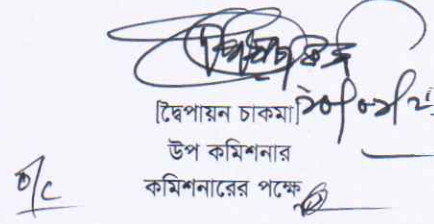 [দ্বৈপায়ন চাকমা]
উপ কমিশনার
কমিশনারের পক্ষে
o/c